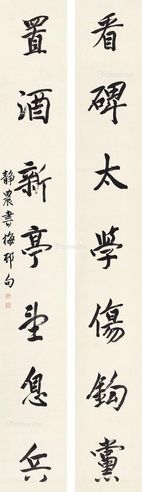 看碑太學傷鉤黨
置酒新亭望息兵
靜農書梅邨句